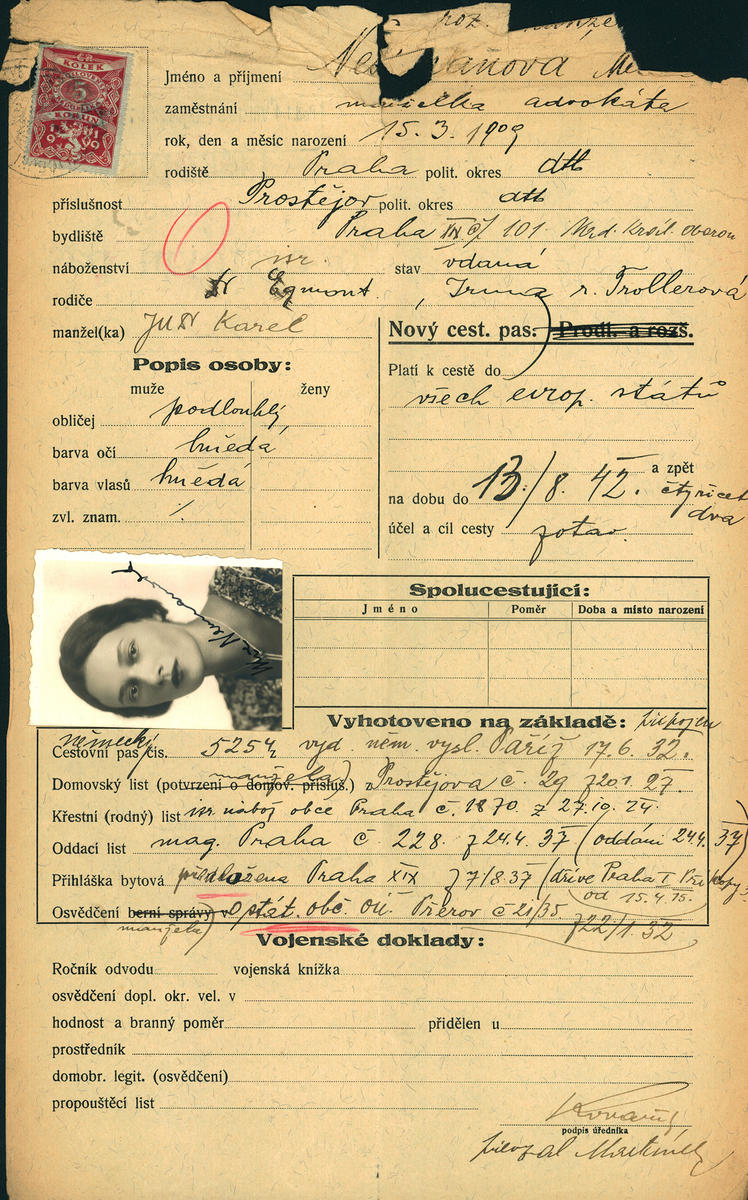 roz.
KOLEK
5
KORUN
1919
Jméno a příjmení
zaměstnání manželka advokáta
rok, den a měsíc narození 15. 3. 1909
rodiště Praha polit. okres dtt
příslušnost Prostějov polit. okres dtt
bydliště Praha XIX čp 101
náboženství isr. stav vdaná
rodiče Dr Egmont, Irma r. Trollerová
manžel(ka) JUDr Karel
Nový cest. pas: Prodl. a rozš.
Popis osoby:
muže ženy
Platí k cestě do
všech evrop. států
obličej podlouhlý
barva očí hnědá
barva vlasů hnědá
zvl. znam. %
na dobu do 13/8. 42. a zpět
čtyřicet
dva
účel a cíl cesty zotav.
Neumannová
Spolucestující:
Jméno Poměr Doba a místo narození
Vyhotoveno na základě: připojen
německý
Cestovní pas čís. 5254 vyd. něm. vysl. Paříž 17.6.32.
manžela
Domovský list (potvrzení o domov. přísluš.) Prostějova č. 29 z 20.1.27.
Křestní (rodný) list isr. nábož obce Praha č. 1870 z 27.10.24.
Oddací list mag. Praha č 228 z 24.4.37 (oddáni 24.4.37)
Přihláška bytová přeložena Praha XIX z 7/8.37 (dříve Praha I Příkopy
od 15.4.15.
Osvědčení berní správy v o stát. obč. OÚ. Přerov č 21/35
manžela) z 22/1.32
Vojenské doklady:
Ročník odvodu vojenská knížka
osvědčení dopl. okr. vel. v
hodnost a branný poměr přidělen u
prostředník
domobr. legit. (osvědčení)
propouštěcí list
podpis úředníka